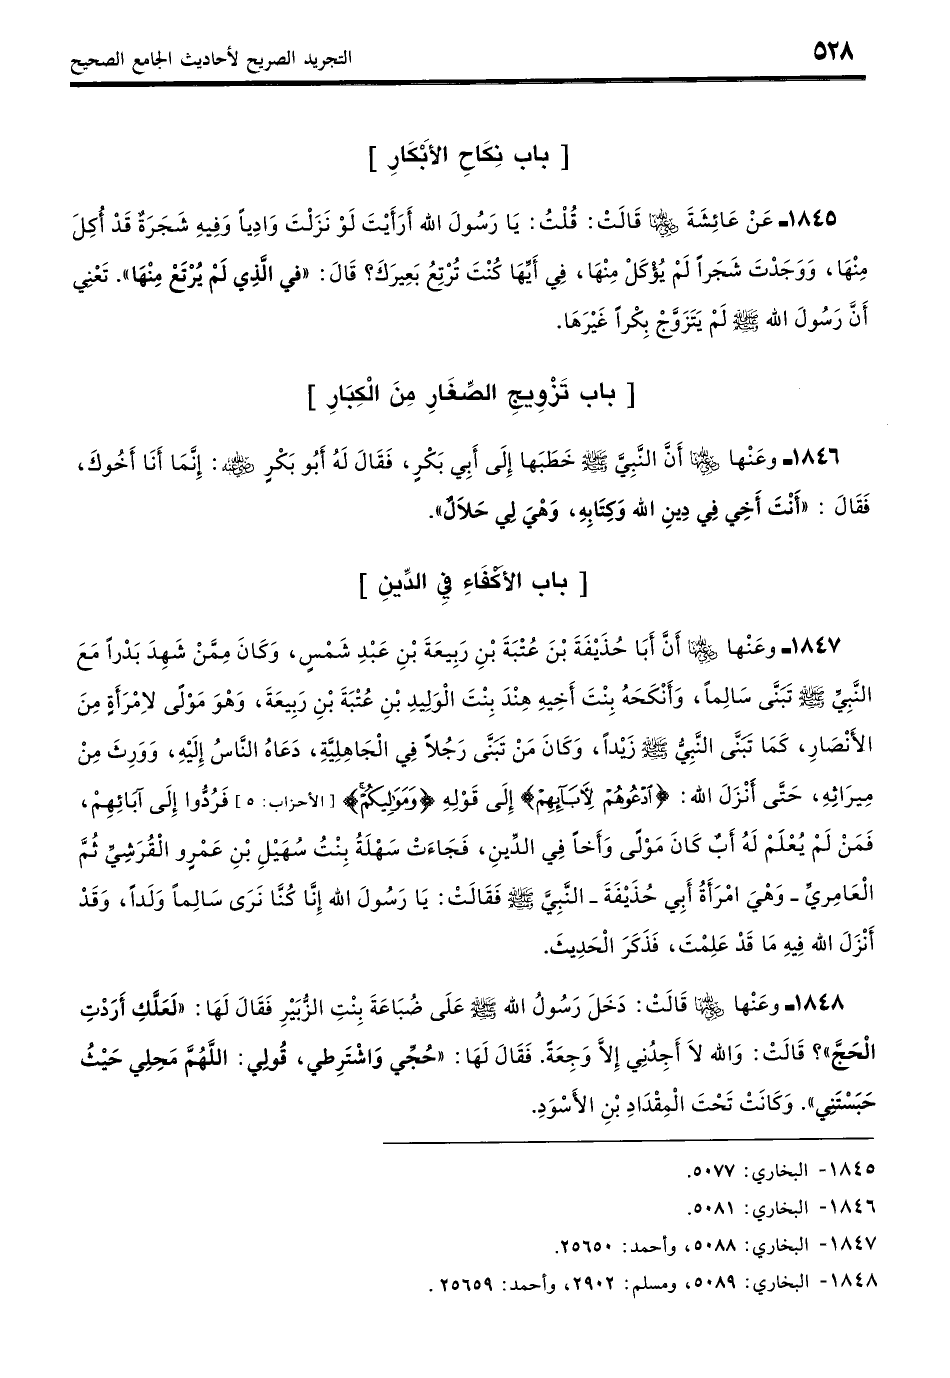 ٥٢٨ التجريد الصريح لأحاديث الجامع الصحيح
[ باب نِكَاحِ الأَبْكَارِ ]
١٨٤٥ـ عَنْ عَائِشَةَ رضي الله عنها قَالَتْ: قُلْتُ: يَا رَسُولَ الله أَرَأَيْتَ لَوْ نَزَلْتَ وَادِياً وَفِيهِ شَجَرَةٌ قَدْ أُكِلَ
مِنْهَا، وَوَجَدْتَ شَجَراً لَمْ يُؤْكَلْ مِنْهَا، فِي أَيِّهَا كُنْتَ تُرْتِعُ بَعِيرَكَ؟ قَالَ: «في الَّذِي لَمْ يُرْتَعْ مِنْهَا». تَعْنِي
أَنَّ رَسُولَ الله ﷺ لَمْ يَتَزَوَّجْ بِكْراً غَيْرَهَا.
[ باب تَزْوِيجِ الصِّغَارِ مِنَ الْكِبَارِ ]
١٨٤٦ـ وعَنْها رضي الله عنها أَنَّ النَّبِيَّ ﷺ خَطَبَها إِلَى أَبِي بَكْرٍ، فَقَالَ لَهُ أَبُو بَكْرٍ رضي الله عنه: إِنَّمَا أَنَا أَخُوكَ،
فَقَالَ : «أَنْتَ أَخِي فِي دِينِ الله وَكِتَابِهِ، وَهْيَ لِي حَلاَلٌ».
[ باب الأَكْفَاءِ فِي الدِّينِ ]
١٨٤٧ـ وعَنْها رضي الله عنها أَنَّ أَبَا حُذَيْفَةَ بْنَ عُتْبَةَ بْنِ رَبِيعَةَ بْنِ عَبْدِ شَمْسٍ، وَكَانَ مِمَّنْ شَهِدَ بَدْراً مَعَ
النَّبِيِّ ﷺ تَبَنَّى سَالِماً، وَأَنْكَحَهُ بِنْتَ أَخِيهِ هِنْدَ بِنْتَ الْوَلِيدِ بْنِ عُتْبَةَ بْنِ رَبِيعَةَ، وَهْوَ مَوْلًى لاِمْرَأَةٍ مِنَ
الأَنْصَارِ، كَمَا تَبَنَّى النَّبِيُّ ﷺ زَيْداً، وَكَانَ مَنْ تَبَنَّى رَجُلاً فِي الْجَاهِلِيَّةِ، دَعَاهُ النَّاسُ إِلَيْهِ، وَوَرِثَ مِنْ
مِيرَاثِهِ، حَتَّى أَنْزَلَ الله: ﴿ٱدْعُوهُمْ لِأَبَآئِهِمْ﴾ إِلَى قَوْلِهِ ﴿وَمَوَٰلِيكُمْ﴾ [الأحزاب: ٥] فَرُدُّوا إِلَى آبَائِهِمْ،
فَمَنْ لَمْ يُعْلَمْ لَهُ أَبٌ كَانَ مَوْلًى وَأَخاً فِي الدِّينِ، فَجَاءَتْ سَهْلَةُ بِنْتُ سُهَيْلِ بْنِ عَمْرٍو الْقُرَشِيِّ ثُمَّ
الْعَامِرِيِّ ـ وَهْيَ امْرَأَةُ أَبِي حُذَيْفَةَ ـ النَّبِيَّ ﷺ فَقَالَتْ: يَا رَسُولَ الله إِنَّا كُنَّا نَرَى سَالِماً وَلَداً، وَقَدْ
أَنْزَلَ الله فِيهِ مَا قَدْ عَلِمْتَ، فَذَكَرَ الْحَدِيثَ.
١٨٤٨ـ وعَنْها رضي الله عنها قَالَتْ: دَخَلَ رَسُولُ الله ﷺ عَلَى ضُبَاعَةَ بِنْتِ الزُّبَيْرِ فَقَالَ لَهَا: «لَعَلَّكِ أَرَدْتِ
الْحَجَّ»؟ قَالَتْ: وَالله لاَ أَجِدُنِي إِلاَّ وَجِعَةً. فَقَالَ لَهَا: «حُجِّي وَاشْتَرِطِي، قُولِي: اللَّهُمَّ مَحِلِي حَيْثُ
حَبَسْتَنِي». وَكَانَتْ تَحْتَ الْمِقْدَادِ بْنِ الأَسْوَدِ.
١٨٤٥- البخاري: ٥٠٧٧.
١٨٤٦- البخاري: ٥٠٨١.
١٨٤٧- البخاري: ٥٠٨٨، وأحمد: ٢٥٦٥٠.
١٨٤٨- البخاري: ٥٠٨٩، ومسلم: ٢٩٠٢، وأحمد: ٢٥٦٥٩.